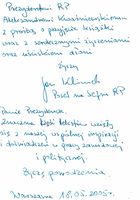 Prezydentowi RP
Aleksandrowi Kwaśniewskiemu
z prośbą o przyjęcie książki
wraz z serdecznymi życzeniami
oraz uściskiem dłoni
Życzy
Jan Klimek
Poseł na Sejm RP
Panie Prezydencie,
Znaczna część tekstów wzięła
się z naszej wspólnej inspiracji
i doświadczeń w pracy zawodowej
i politycznej.
Życzę powodzenia
Warszawa 18.05.2005 r.